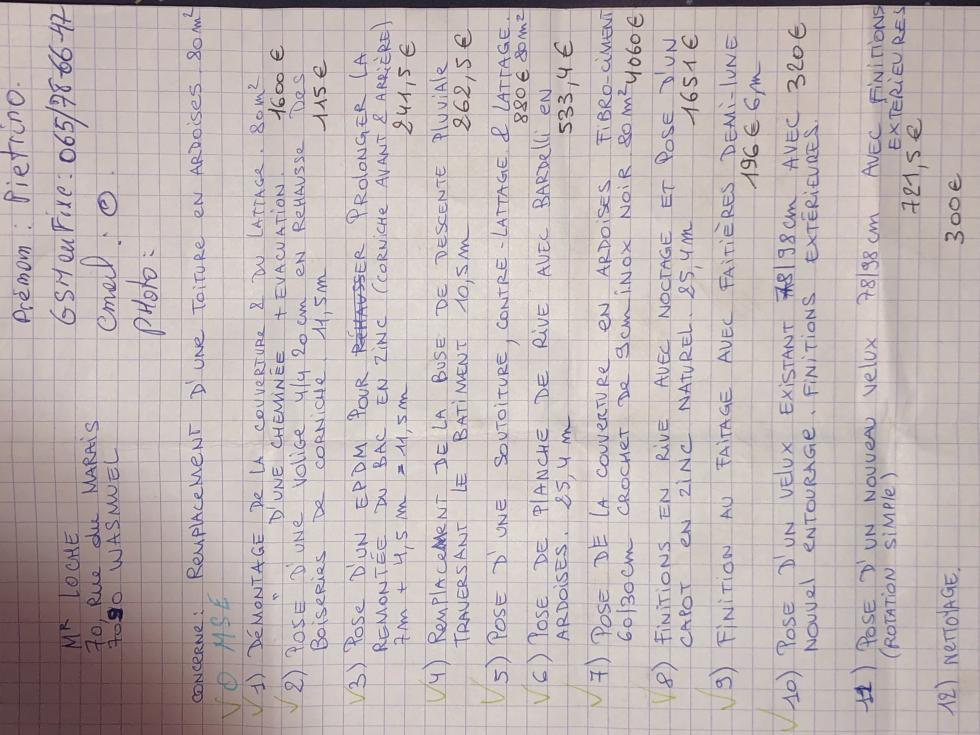 MR LOCHE
70, Rue du MARAIS
7090 WASMUEL
Prénom : Pietrino.
GSM ou Fixe : 065/78-66-47
Email :
PHOTO :
CONCERNE : REMPLACEMENT D'UNE TOITURE EN ARDOISES. 80m²
0 MSE
1) DÉMONTAGE DE LA COUVERTURE & DU LATTAGE. 80m²
" D'UNE CHEMINÉE + EVACUATION. 1600€
2) POSE D'UNE VOLIGE 4/4 20cm EN REHAUSSE DES
BOISERIES DE CORNICHE. 11,5m 115€
3) POSE D'UN EPDM POUR PROLONGER LA
REMONTÉE DU BAC EN ZINC (CORNICHE AVANT & ARRIÈRE)
7m + 4,5m = 11,5m 241,5€
4) REMPLACEMENT DE LA BUSE DE DESCENTE PLUVIALE
TRAVERSANT LE BATIMENT 10,5m 262,5€
5) POSE D'UNE SOUTOITURE, CONTRE-LATTAGE & LATTAGE.
880€ 80m²
6) POSE DE PLANCHE DE RIVE AVEC BARDELLI EN
ARDOISES. 25,4m 533,4€
7) POSE DE LA COUVERTURE EN ARDOISES FIBRO-CIMENT
60/30cm CROCHET DE 9cm INOX NOIR 80m² 4060€
8) FINITIONS EN RIVE AVEC NOCTAGE ET POSE D'UN
CAPOT EN ZINC NATUREL. 25,4m 1651€
9) FINITION AU FAITAGE AVEC FAITIÈRES DEMI-LUNE
196€ 6,m
10) POSE D'UN VELUX EXISTANT 78/98cm AVEC 320€
NOUVEL ENTOURAGE. FINITIONS EXTÉRIEURES.
11) POSE D'UN NOUVEAU VELUX 78/98cm AVEC FINITIONS
(ROTATION SIMPLE) EXTÉRIEURES
721,5€
12) NETTOYAGE. 300€